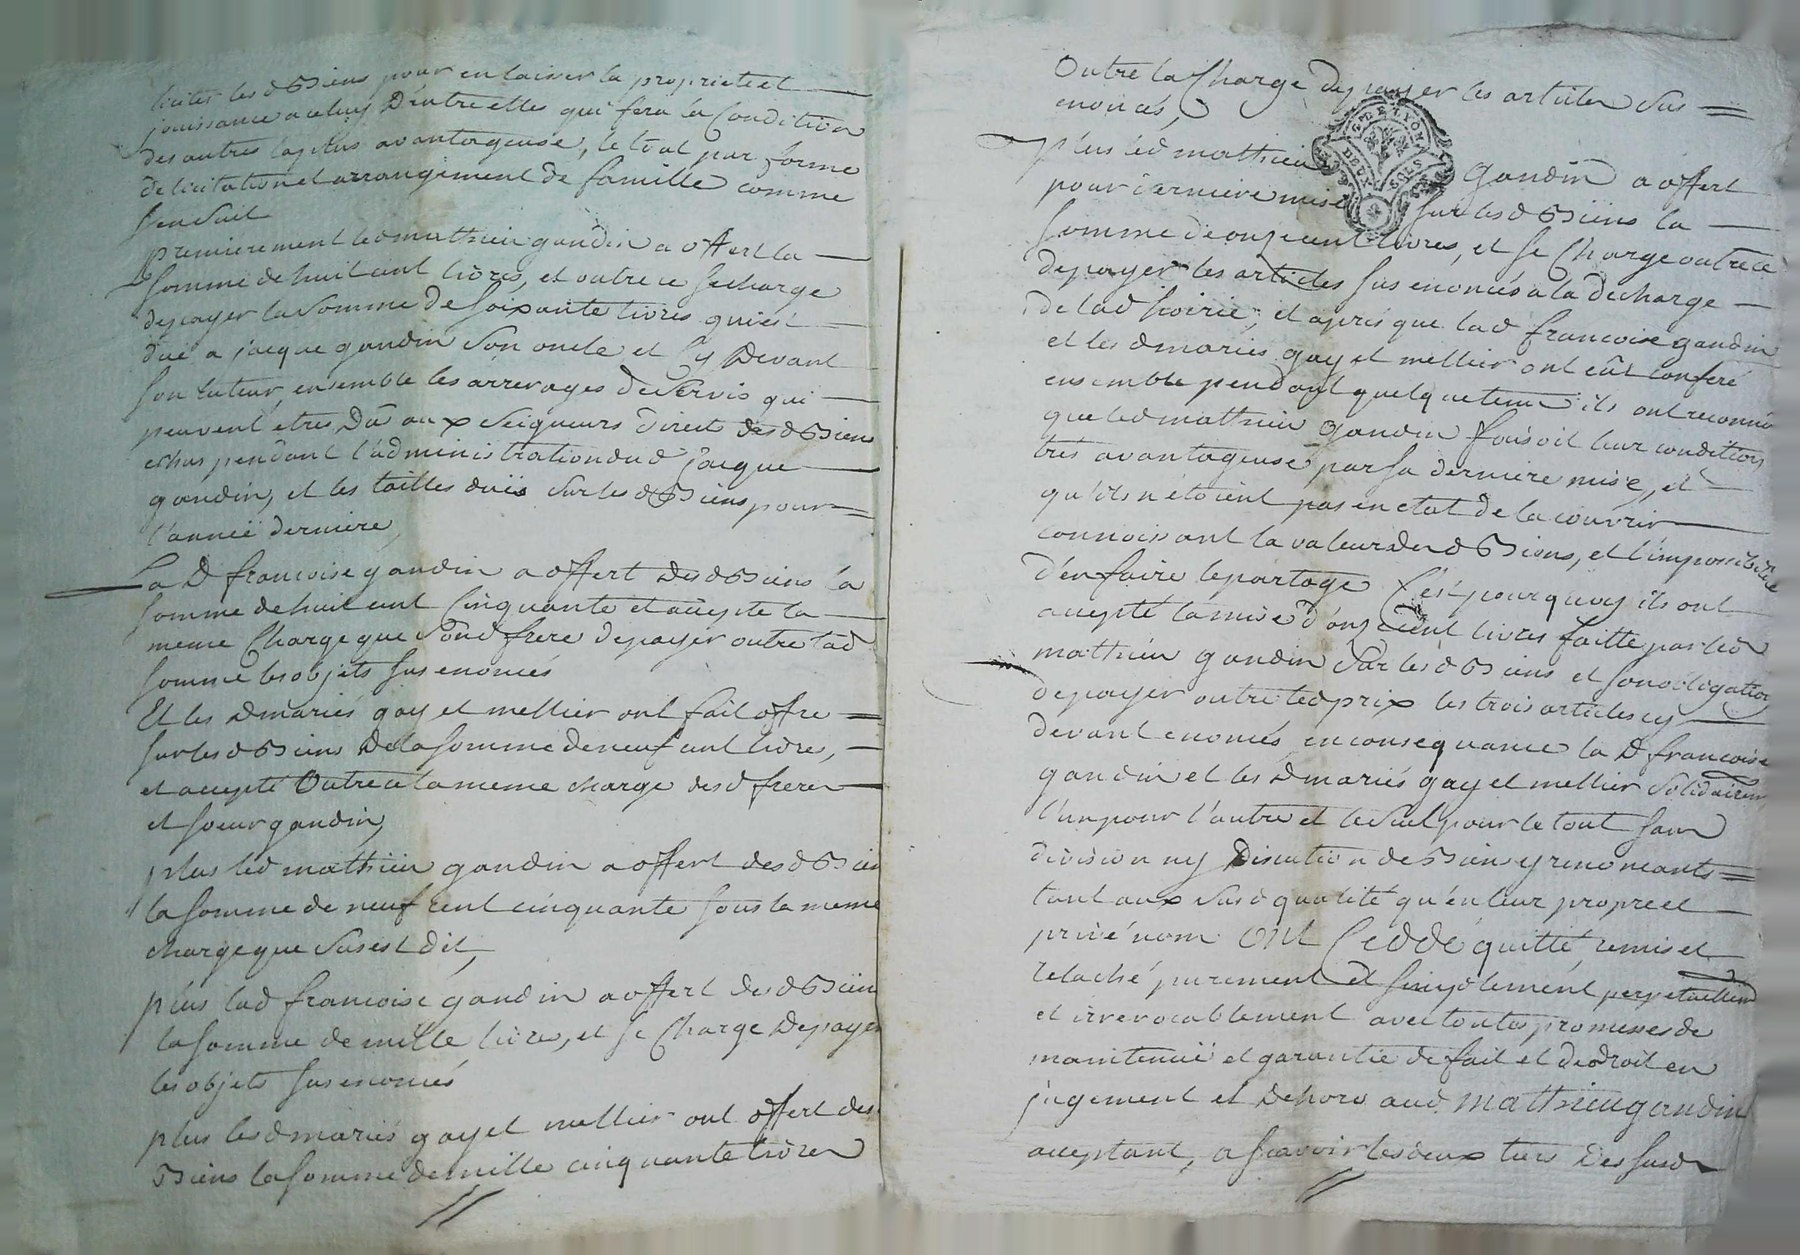 liciter lesd Biens pour en laisser la proprieté et
jouissance a celuy D'entre elles qui fera la Condition
des autres la plus avantageuse, le tout par forme
de licitation et arrangement de famille comme
s'ensuit
premierement led mathieu gandin a offert la
somme de huit cent livres, et outre ce se charge
depayer la somme de soixante livres qui est
duë a jacque gandin son oncle et Cy Devant
son tuteur, ensemble les arrerages de servis qui
peuvent etres Dûs aux seigneurs directs desd Biens
echus pendant l'administration dud jacque
gandin, et les tailles duës sur lesd Biens pour
l'année derniere,
La D francoise gandin a offert desd Biens la
somme de huit cent Cinquante et accepte la
meme Charge que sond frere depayer outre lad
somme les objets sus enoncés
Et les Dmariés gay et mellier ont fait offre
sur lesd Biens De la somme de neuf cent livres,
et accepté Outre ce la meme charge desd freres
et soeur gandin,
plus led mathieu gandin a offert desd Biens
la somme de neuf cent cinquante sous la meme
charge que sus est dit,
plus lad francoise gandin a offert desd Biens
la somme de mille livres, et se Charge Depayer
les objets sus enoncés
plus lesd mariés gay et mellier ont offert desd
Biens la somme de mille cinquante livres
Outre la Charge depayer les articles sus
enoncés,
G. DE LYON
DEUX SOLS
plus led mathieu gandin a offert
pour derniere mise sur lesd Biens la
somme de onze cent livres, et se Charge outre ce
depayer les articles sus enoncés a la decharge
de lad hoirie; et aprés que lad francoise gandin
et les dmariés gay et mellier ont eût conferé
ensemble pendant quelque tems ils ont reconnû
que led mathieu gandin faisoit leur condition
trés avantageuse par sa derniere mise, et
qu'ils n'étoient pas en etat de la couvrir
connoissant la valeur desd Biens, et l'impossibilité
d'en faire le partage C'est pourquoy ils ont
accepté la mise d'onze cent livres faitte par led
mathieu gandin sur lesd Biens et son obligation
depayer outre led prix les trois articles cy
devant enoncés, en consequance la D francoise
gandin et les Dmariés gay et mellier solidairem
l'un pour l'autre et le seul pour le tout sans
division ny Discution de Biens y renoncants
tant aux susd qualité qu'en leur propre et
privé nom ont Ceddé quitté, remis et
relaché purement et simplement, perpetuellem
et irrevocablement avec toutes promesses de
maintenuë et garantie de fait et de droit en
jugement et Dehors aud mathieu gandin
acceptant, a scavoir les deux tiers Des susd